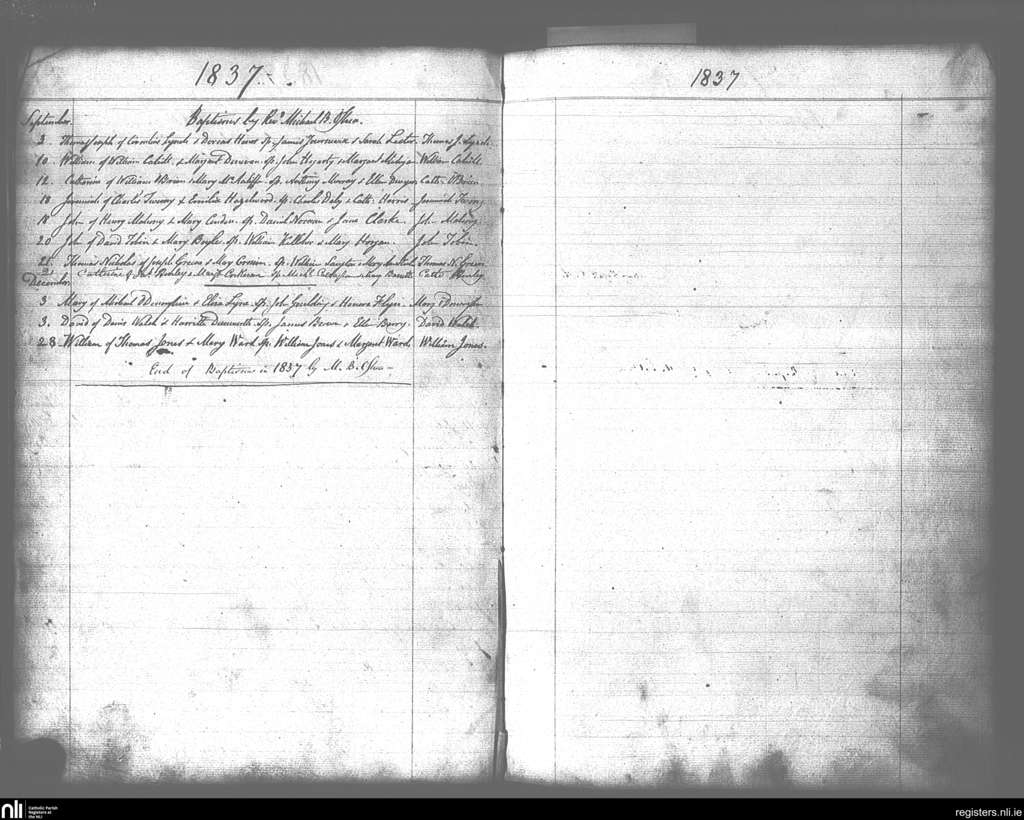 1837
September. Baptisms by Revd. Michael B. O'Shea.
3. Thomas Joseph of Cornelius Lynch & Dorcas Hawes Sp. James & Sarah Lester. Thomas J. Lynch
10. William of William Cahill & Margaret Sp. John Hegarty & Margaret William Cahill
12. Catherine of William O'Brien & Mary McAuliffe Sp. Anthony Murray & Ellen Cathe. O'Brien
18 Jeremiah of Charles Twomey & Emilia Hazelwood. Sp. Charles Daly & Cathe. Harris Jeremiah Twomey
18 John of Henry Mahony & Mary Condon. Sp. Daniel Noonan & Jane Clarke. John Mahony
20 John of David Tobin & Mary Boyle. Sp. William Kelleher & Mary Horgan. John Tobin
22. Thomas Nicholas of Joseph Green & Mary Sp. William & Mary Thomas N. Green
Catherine of & Margt. Corkeran Sp. Michl. & Mary Barrett Cathe.
December.
3 Mary of Michael & Eliza Lyne. Sp. John Goulding & Honora Mary
3. David of Denis Walsh & Harriette Sp. James & Ellen Barry. David Walsh.
28 William of Thomas Jones & Mary Ward Sp. William Jones & Margaret Ward, William Jones.
End of Baptisms in 1837 by M. B. O'Shea
1837
nli Catholic Parish Registers at the NLI
registers.nli.ie